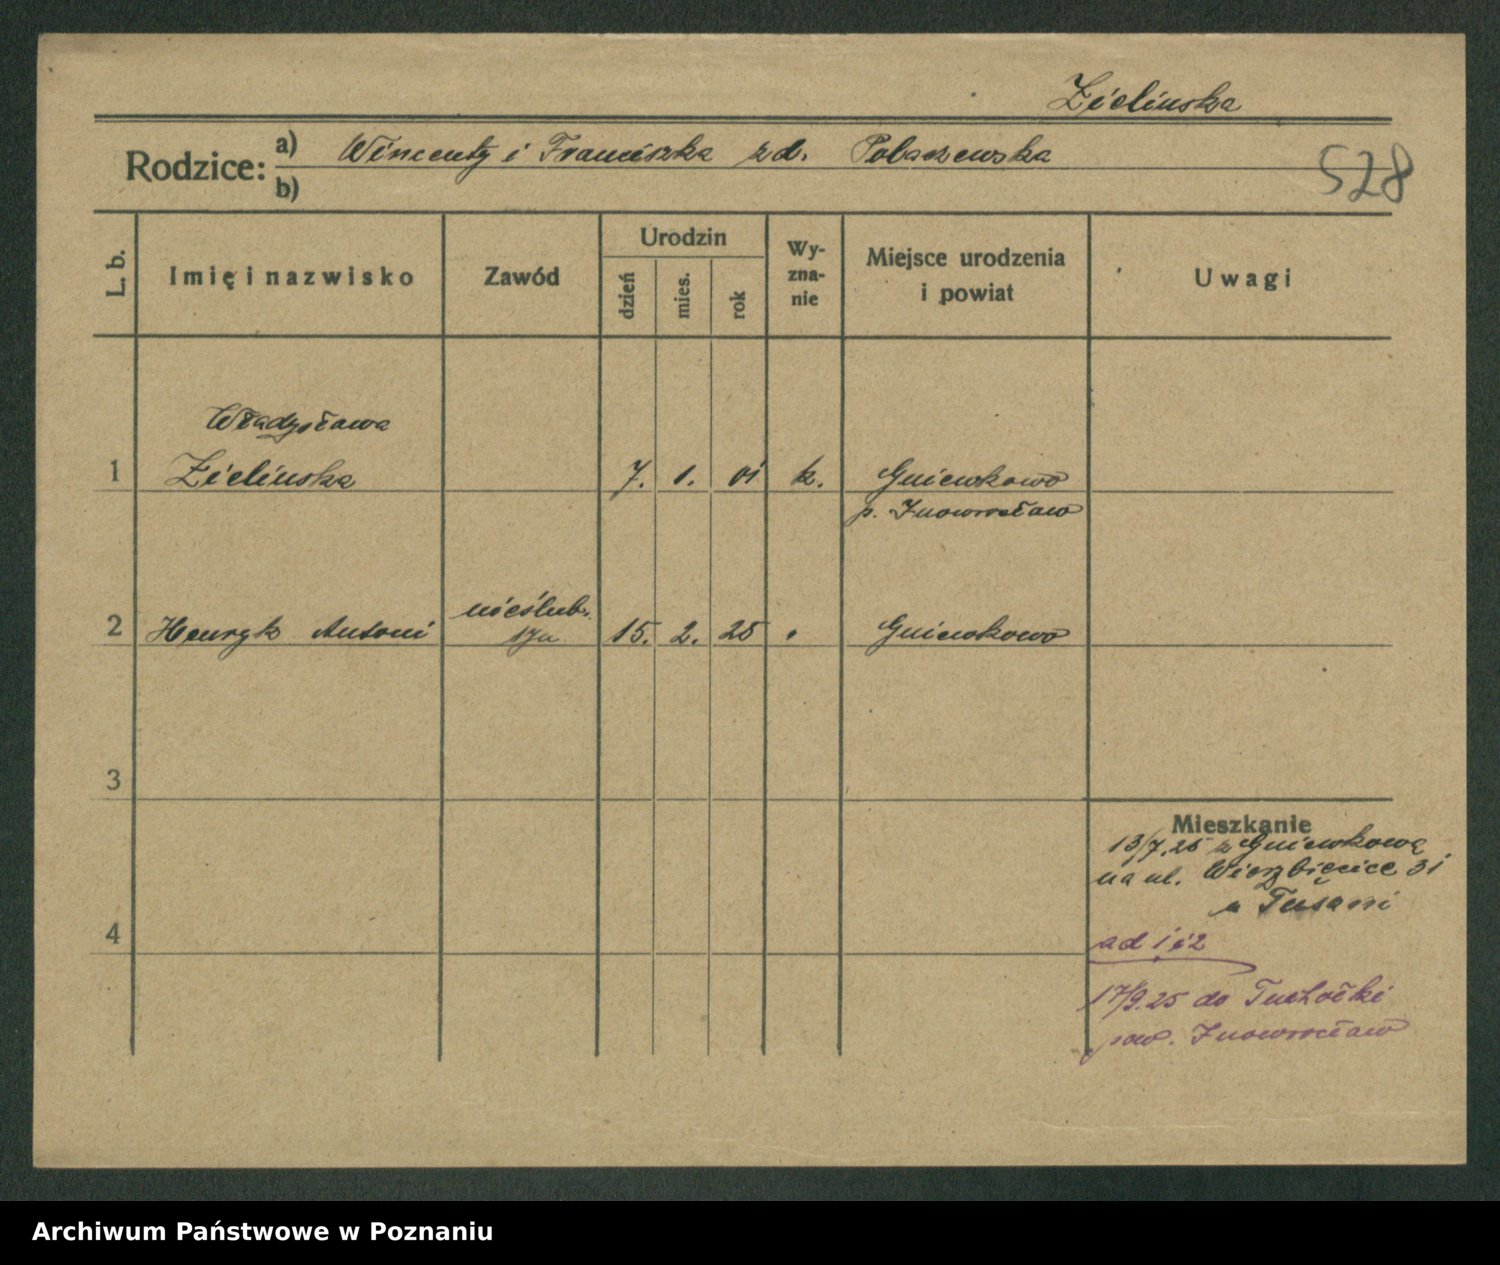 Zielinska
Rodzice: a) Wincenty i Franciszka zd. Polaszewska
b)
528
L. b.
Imię i nazwisko
Zawód
Urodzin
dzień
mies.
rok
Wy-
zna-
nie
Miejsce urodzenia
i powiat
Uwagi
Władysława
1 Zielinska 7. 1. 01 k. Gniewkowo
p. Inowrocław
nieślub.
2 Henryk Antoni 15. 2. 25 " Gniewkowo
3
Mieszkanie
13/7.25 z Gniewkowa
na ul. Wierzbięcice 31
u
4
ad 1 i 2
17/9.25 do
pow. Inowrocław
Archiwum Państwowe w Poznaniu